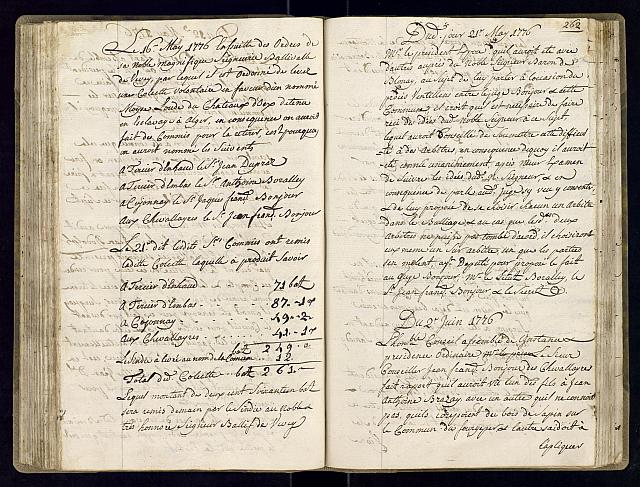 Le 16e May 1776 Ensuitte des Ordres de
sa Noble magnifique Seigneurie Ballivale
de Vevey, par lequel il est Ordonné de lever
une Colecte volontaire en faveur d'un nommé
du Chateaux d'Oex detenu
en Esclavage à Alger, en consequence on auroit
fait des Commis pour la retirer, c'est pourquoy
on auroit nommé les Suivents
à Tercier d'Enhaud le Sr Jean Dupraz
à Tercier d'Embas le Sr Anthoine Boralley
à Cojonnay le Sr Jaques franç. Bonjour
aux Chevallayres le Sr Jean franç. Bonjour
Le 21e dit les dits Srs Commis ont remis
laditte Colecte laquelle à produit Savoir
à Tercier d'Enhaud - 71 bat
à Tercier d'Embas - 87 -
à Cojonnay - 49 - 2
aux Chevallayres - 41 -
bat 249 - 0
le Sindic à livré au nom de la Commune 12
Total du Colecte bat 261 -
Lequel montant de deux cent Soixante un bat
sera remis demain par le Sindic au Noble &
très honnoré Seigneur Ballif de Vevey
262
Dud. jour 21e May 1776
Mr le president qu'il auroit été avec
d'autres auprès du Noble Seigneur Baron de
Blonay, au sujet de luy parler à l'ocasion du
entre le juge Bonjour & cette
Commune, et croit qu'il est nessessaire de faire
des dud. Noble Seigneur à ce Sujet
lequel auroit Conseillé de Soumettre cette difficul
té à des Arbitres, en consequence dequoy il auroit
été connu unanimement, après meur Examen
de Suivre les idées dud. N. Seigneur, & en
consequence de parler aud. juge s'y veux y consentir,
& de luy proposer de se choisir chacun un arbitre
dans le Balliage, & au cas que les dts deux
arbitres ne puisse pas tomber d'acord, d'en choisir
eux meme un Sur arbitre, sen que les parties
s'en melent, ayt Deputté pour proposer le fait
au juge Bonjour, Mr le Boralley, le
Sr Jean franç. Bonjour & le Secret.
Du 2e Juin 1776
L'honble Conseil assemblé de
presidence Ordinaire Mr le le Sieur
Conseiller Jean franç. Bonjour des Chevallayres
fait raport qu'il auroit vû l'un des fils à Jean
Antoine avec un autre qu'il ne connoit
pas, qu'ils coupoyent du bois de Sapin sur
le Commun & l'autre aidoit à
l'apliquer